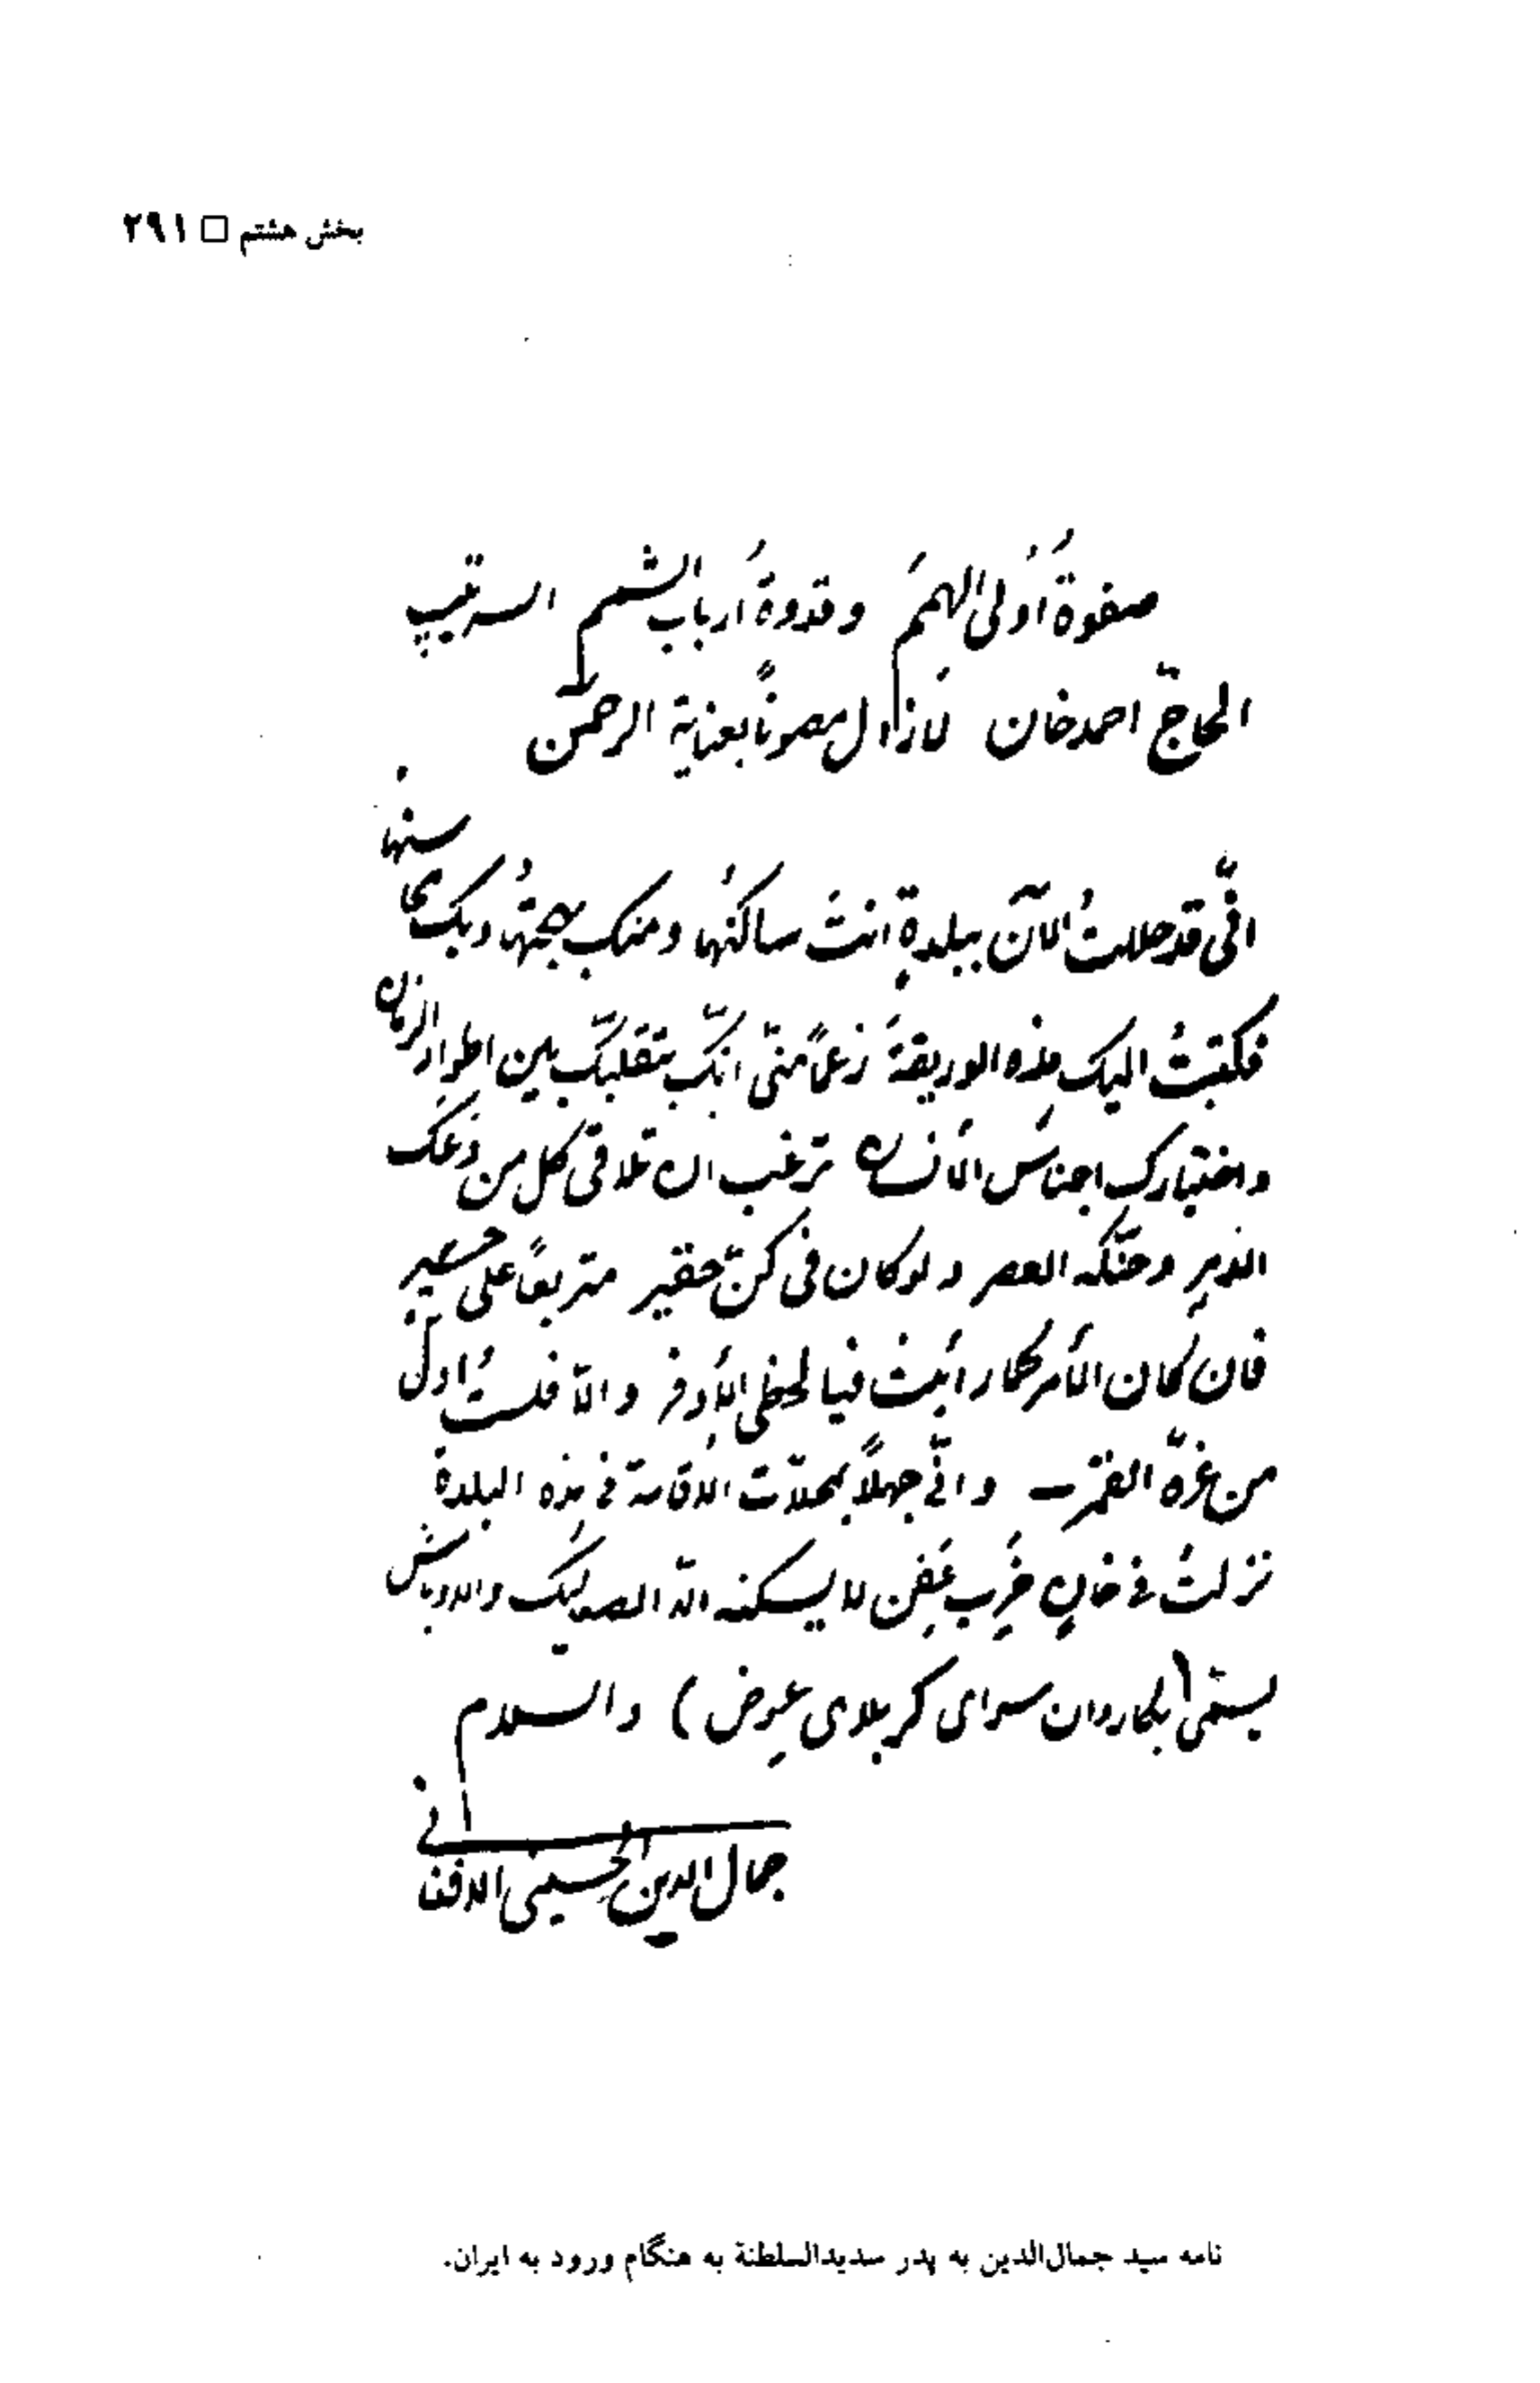 بخش هشتم □ ۲۹۱
صفوةُ اُولی الهمَم وقدوةُ أرباب الشمم السرتیپ
الحاجّ احمدخان لازال مصوناً بعنایة الرحمن
انّی قد حللتُ الآن ببلدةٍ انتَ ساکنُها ومنک بهجتُها وبک محاسنها
فکتبتُ الیک هذه الوریقةَ زعماً منّی انّک بتقلبک بین اطوار الزمان
واختبارک اجناسَ الأنسان ترغب ان تلاقی کل من وعکَک
الدهرِ وحنّکه العصر ولو کان فی کنّ حقیر متربعاً علی حصیر
فان کان الأمر کما رأیت فیا لحظی الأوفر والّا فلستُ اول
من غرّه القمر وانّی جهلاً بمحلّات الأقامة فی هذه البلدة
نزلتُ فی خانٍ خَرِب عَفِن لا یسکنه الّا الصعالیک والاوباش
یسمّی (بکاروان سرای کربلای عوض) والسلام
جمال الدین الحسینی الافغانی
نامه سید جمال‌الدین به پدر سدیدالسلطنة به هنگام ورود به ایران.